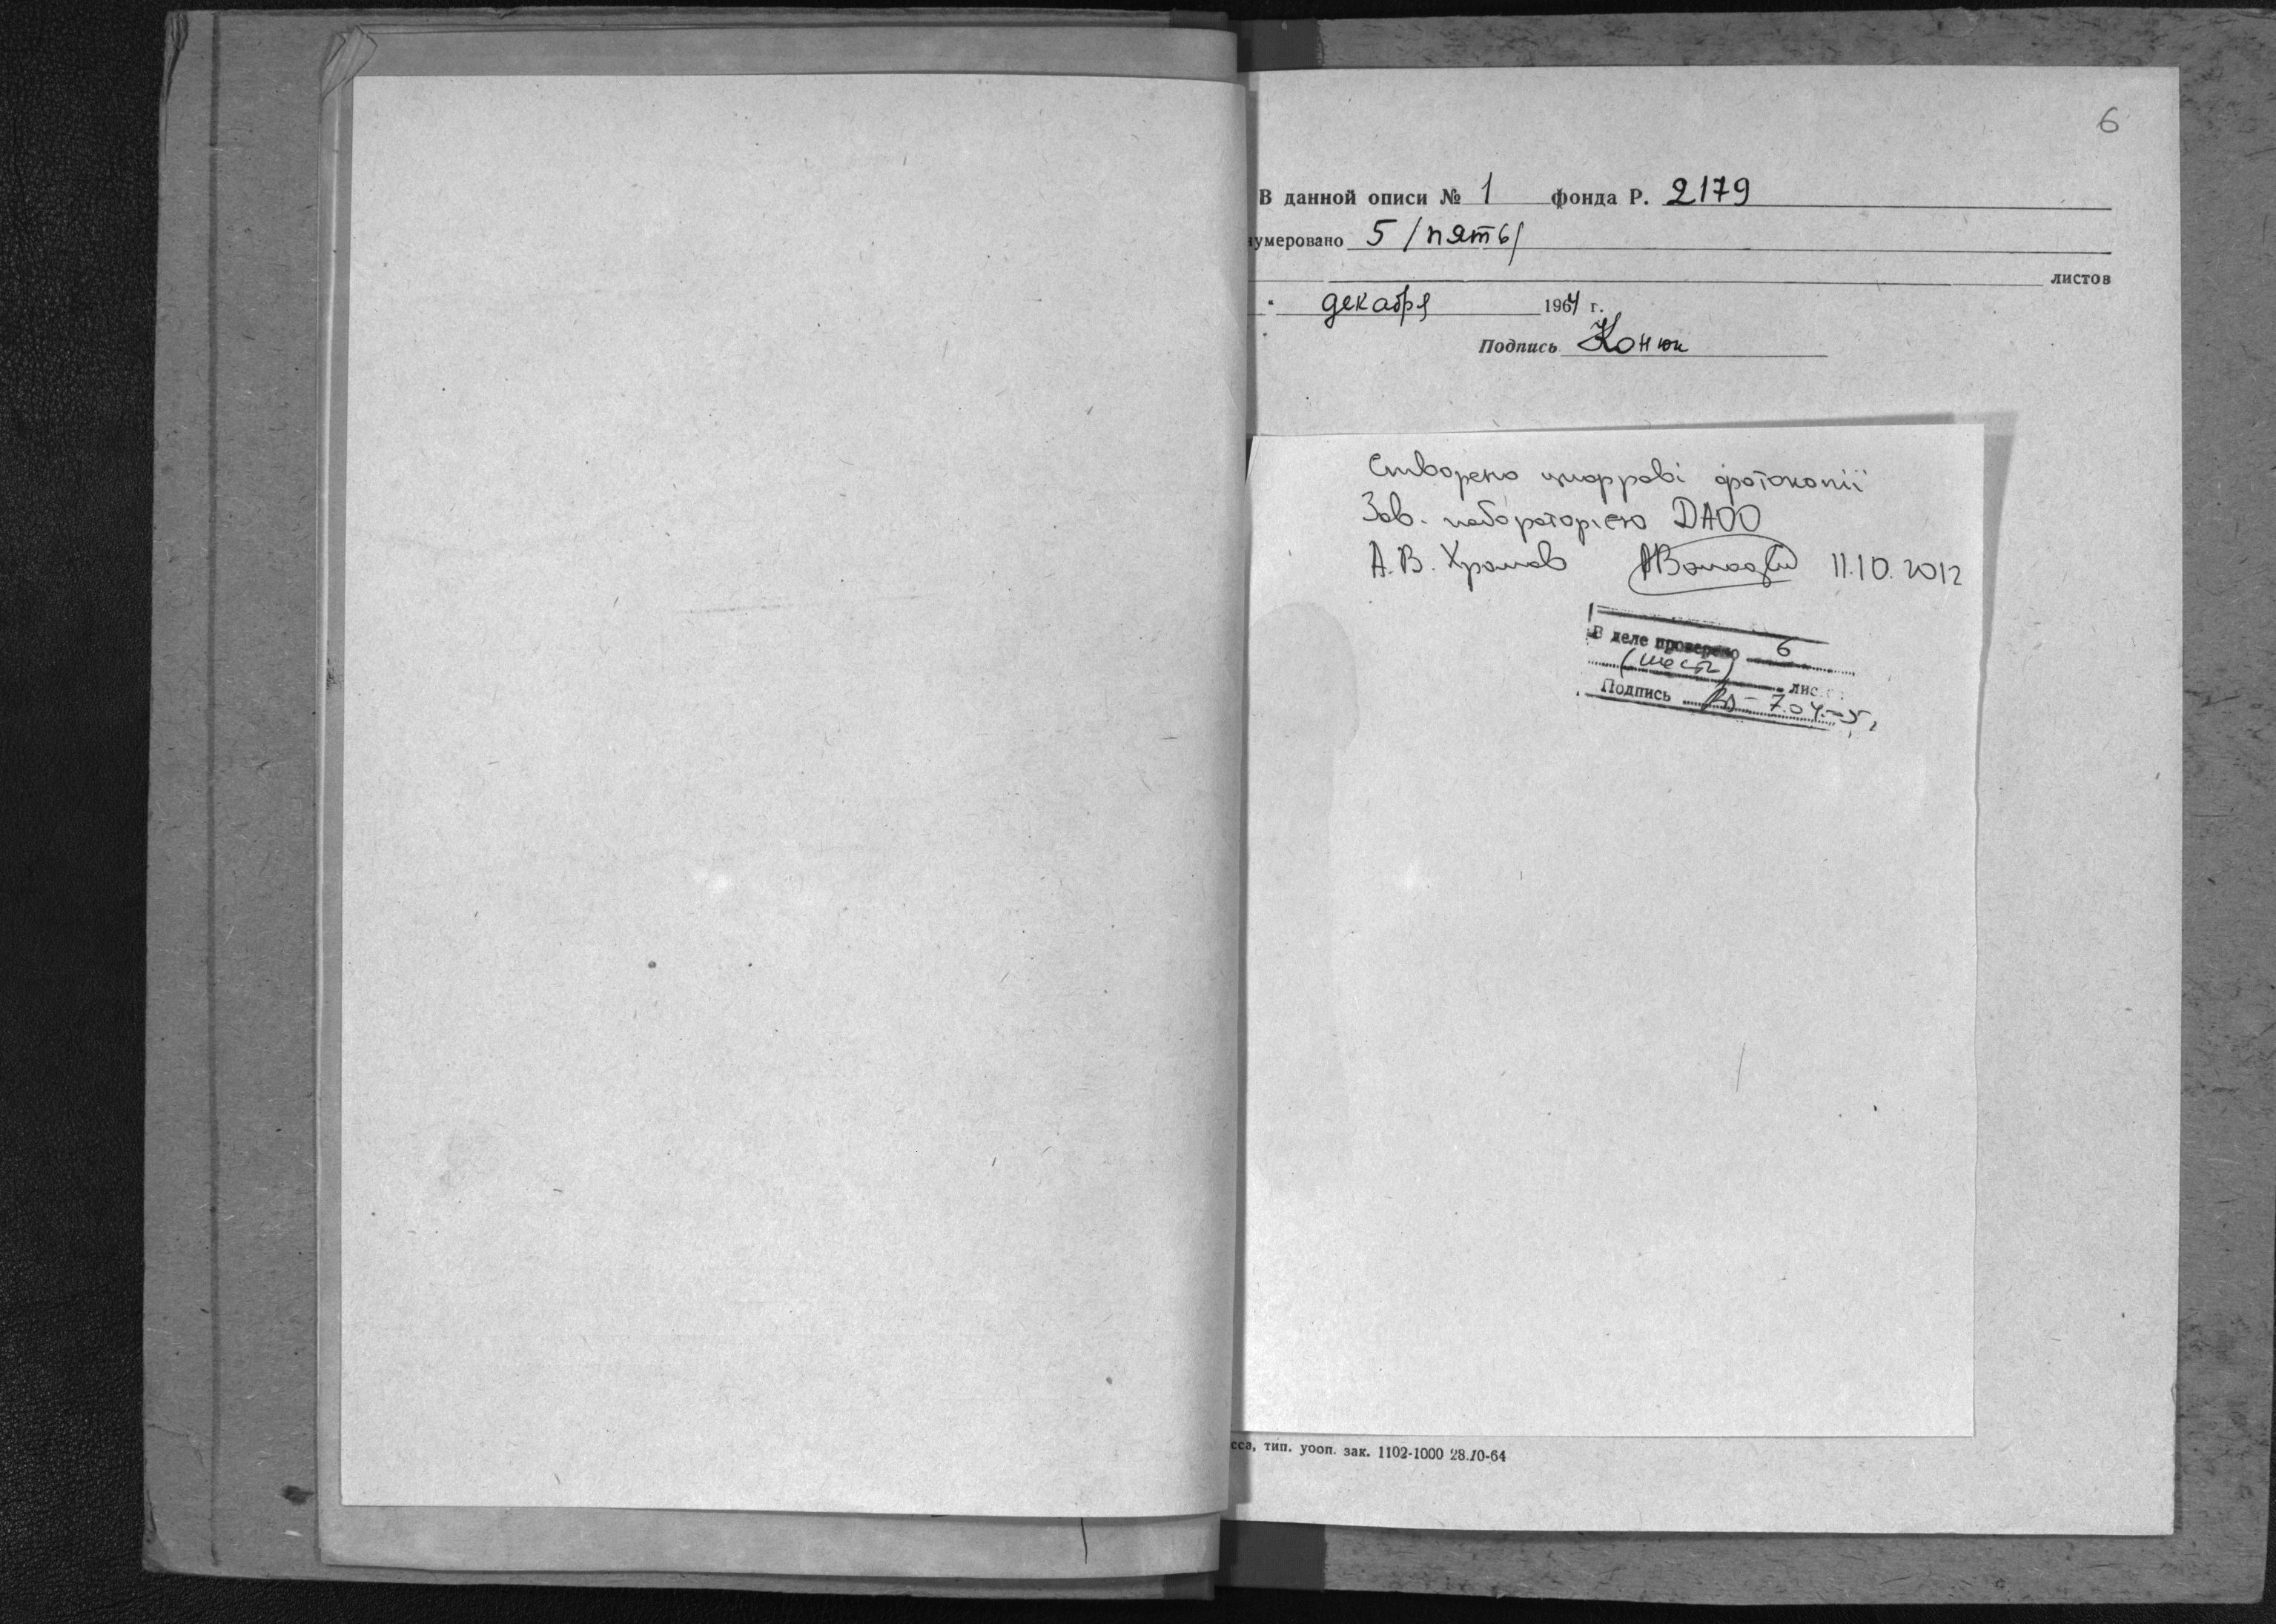 6
В данной описи № 1 фонда Р. 2179
нумеровано 5 /пять/
листов
" декабря 1964 г.
Подпись Конюк
Створено цифрові фотокопії
Зав. лабораторією ДАОО
А.В. Храмов 11.10.2012
В деле проверено 6
(шесть)
лис
Подпись 7.04.
сса, тип. уооп. зак. 1102-1000 28.10-64